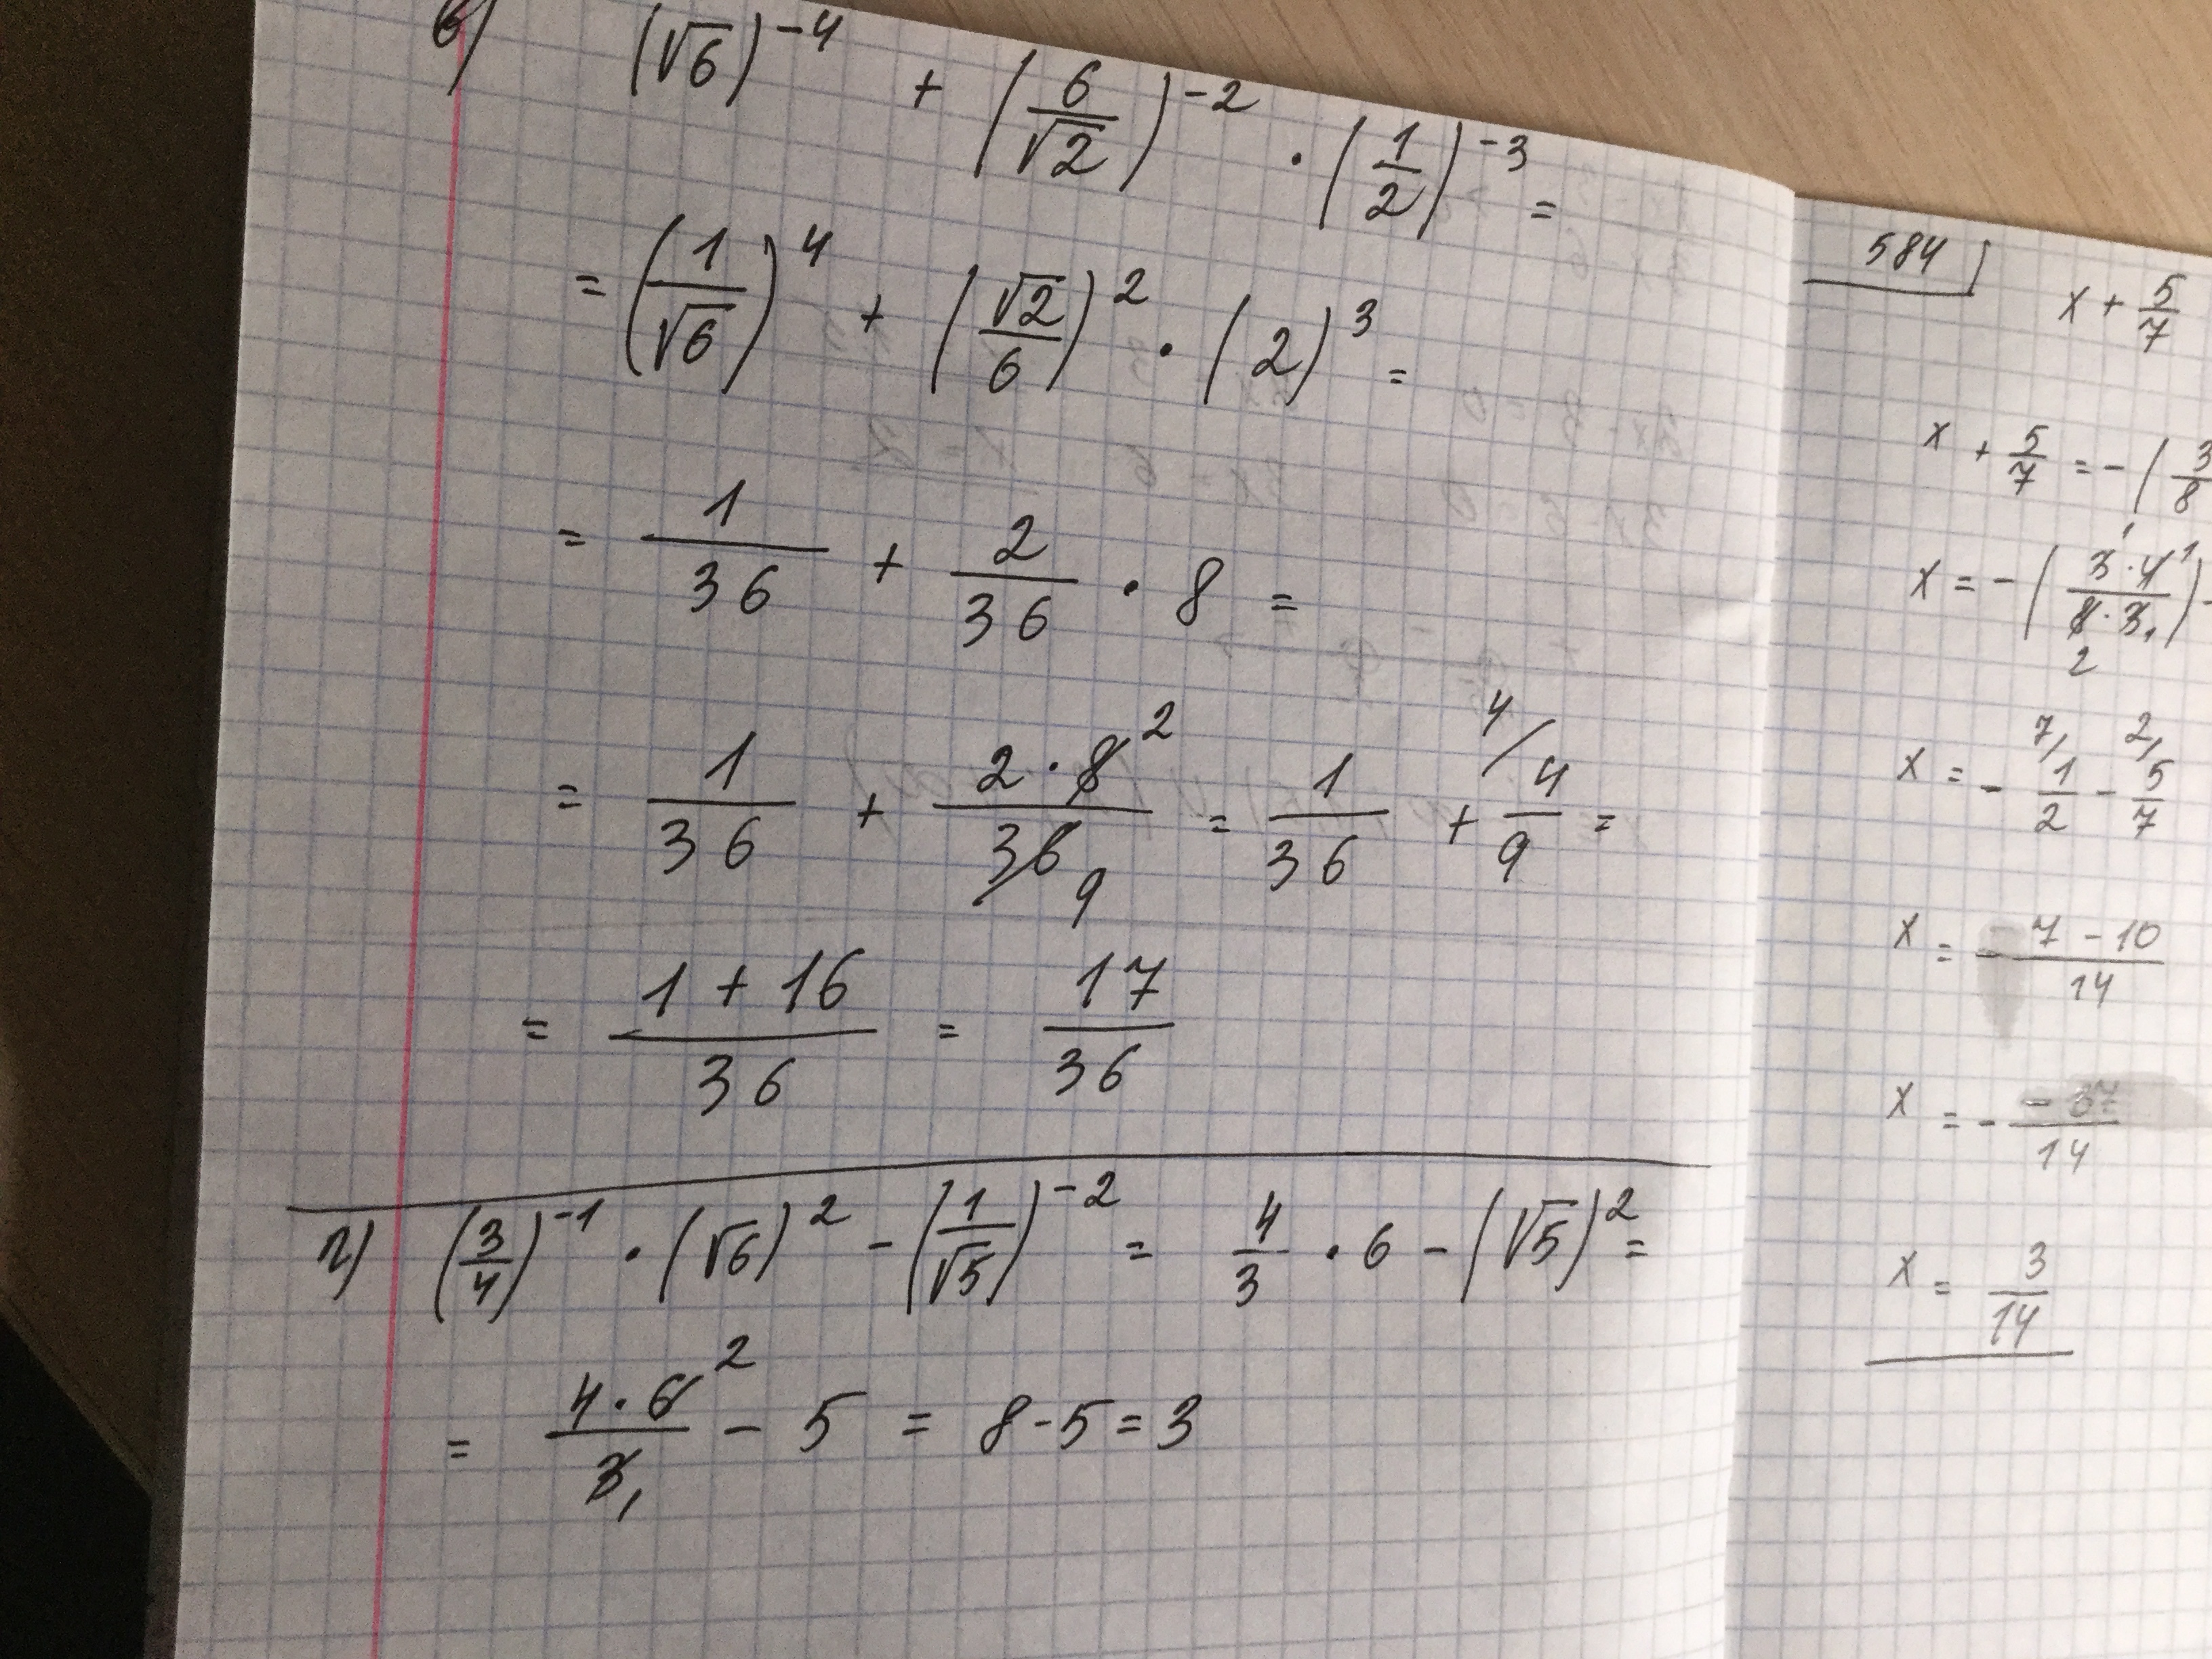 в) (√6)⁻⁴ + (6/√2)⁻² · (1/2)⁻³ =
= (1/√6)⁴ + (√2/6)² · (2)³ =
= 1/36 + 2/36 · 8 =
= 1/36 + 2·8²/36₉ = 1/36 + ⁴/ 4/9 =
= 1+16/36 = 17/36
г) (3/4)⁻¹ · (√6)² - (1/√5)⁻² = 4/3 · 6 - (√5)² =
= 4·6²/3₁ - 5 = 8-5=3
584
x + 5/7
x + 5/7 = - (3/8
x = - (3¹·4¹/8₂·3₁) -
x = - ⁷/ 1/2 - ²/ 5/7
x = - 7-10/14
x = -
14
x = 3/14